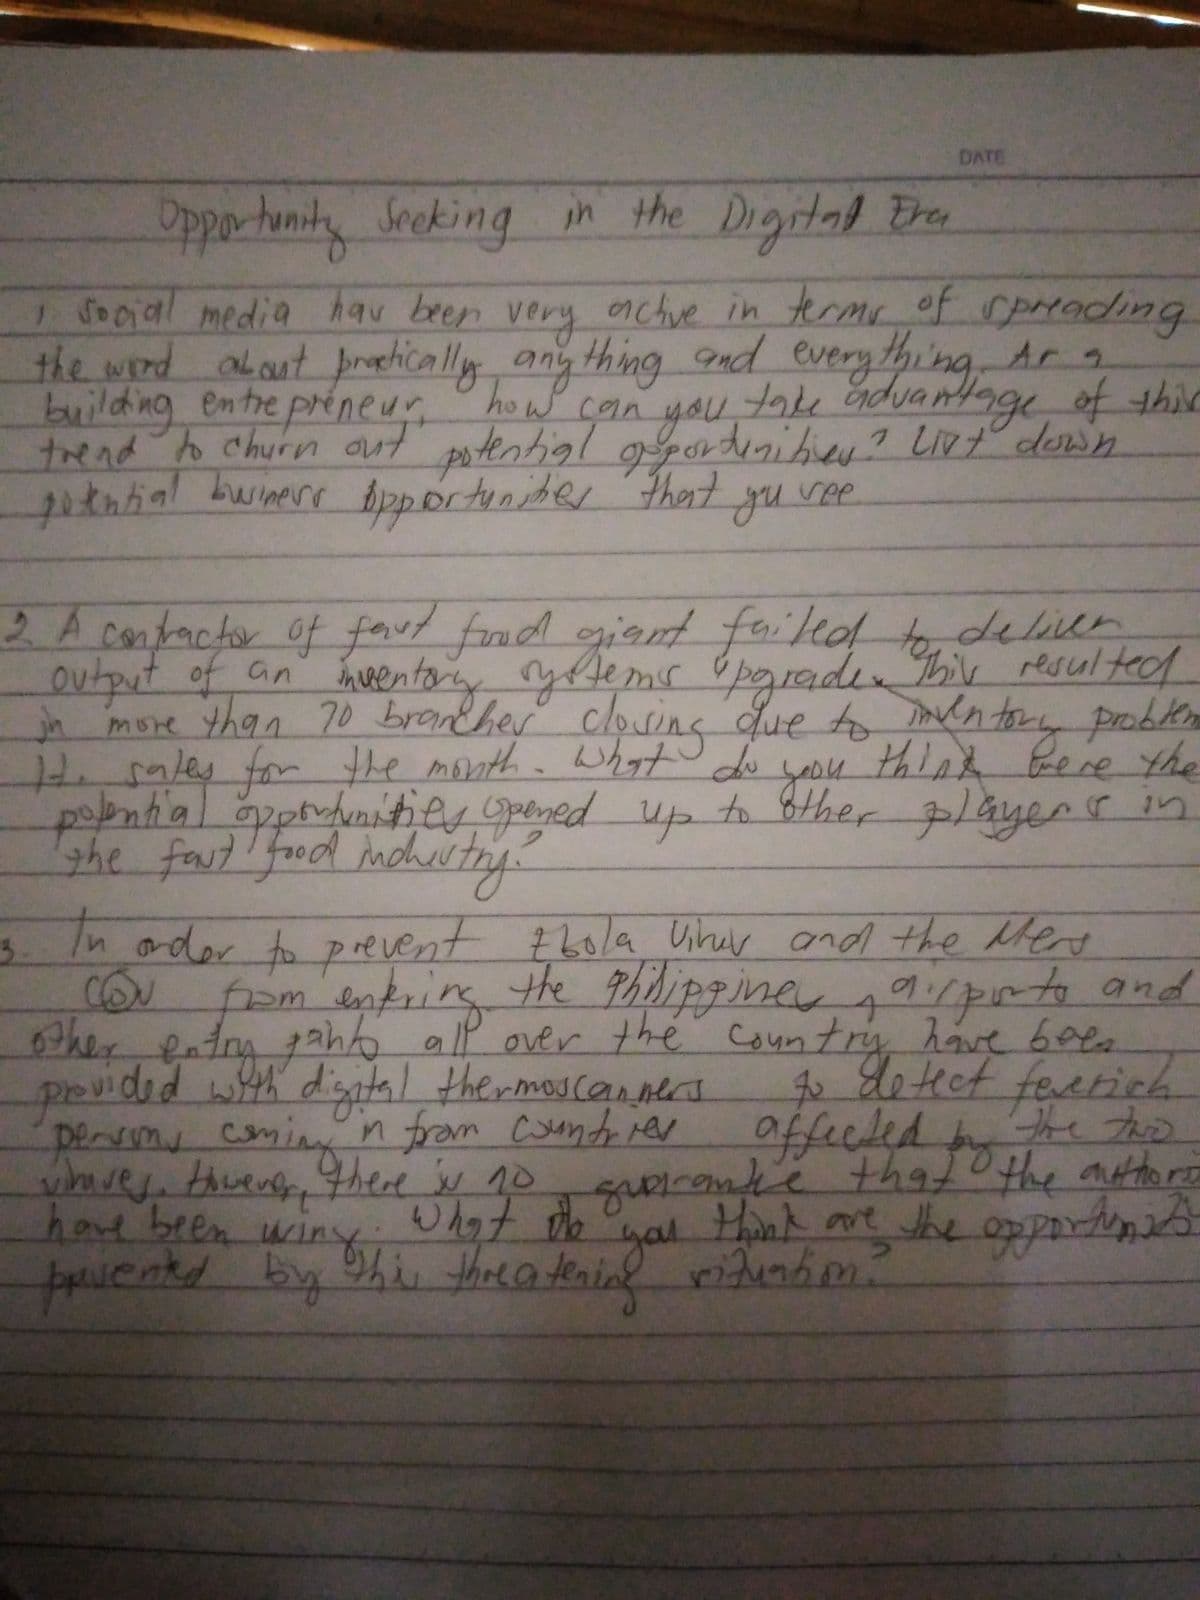 DATE
Opportunity Seeking in the Digital Era
1 Social media has been very active in terms of spreading
the word about practically anything and everything. As a
building entrepreneur, how can you take advantage of this
trend to churn out potential opportunities? List down
potential business opportunities that yu see
2 A contractor of fast food giant failed to deliver
output of an inventory systems upgrade. This resulted
in more than 70 branches closing due to inventory problem
sales for the month. What do you think were the
potential opportunities opened up to other players in
the fast food industry?
3. In order to prevent Ebola Virus and the Mers
COV from entering the Philippines, airports and
other entry all over the country have been
provided with digital thermoscanners to detect feverish
persons coming in from countries affected by the two
viruses. However, there is no guarantee that the
have been winy. What do you think are the
by this threatening situation?